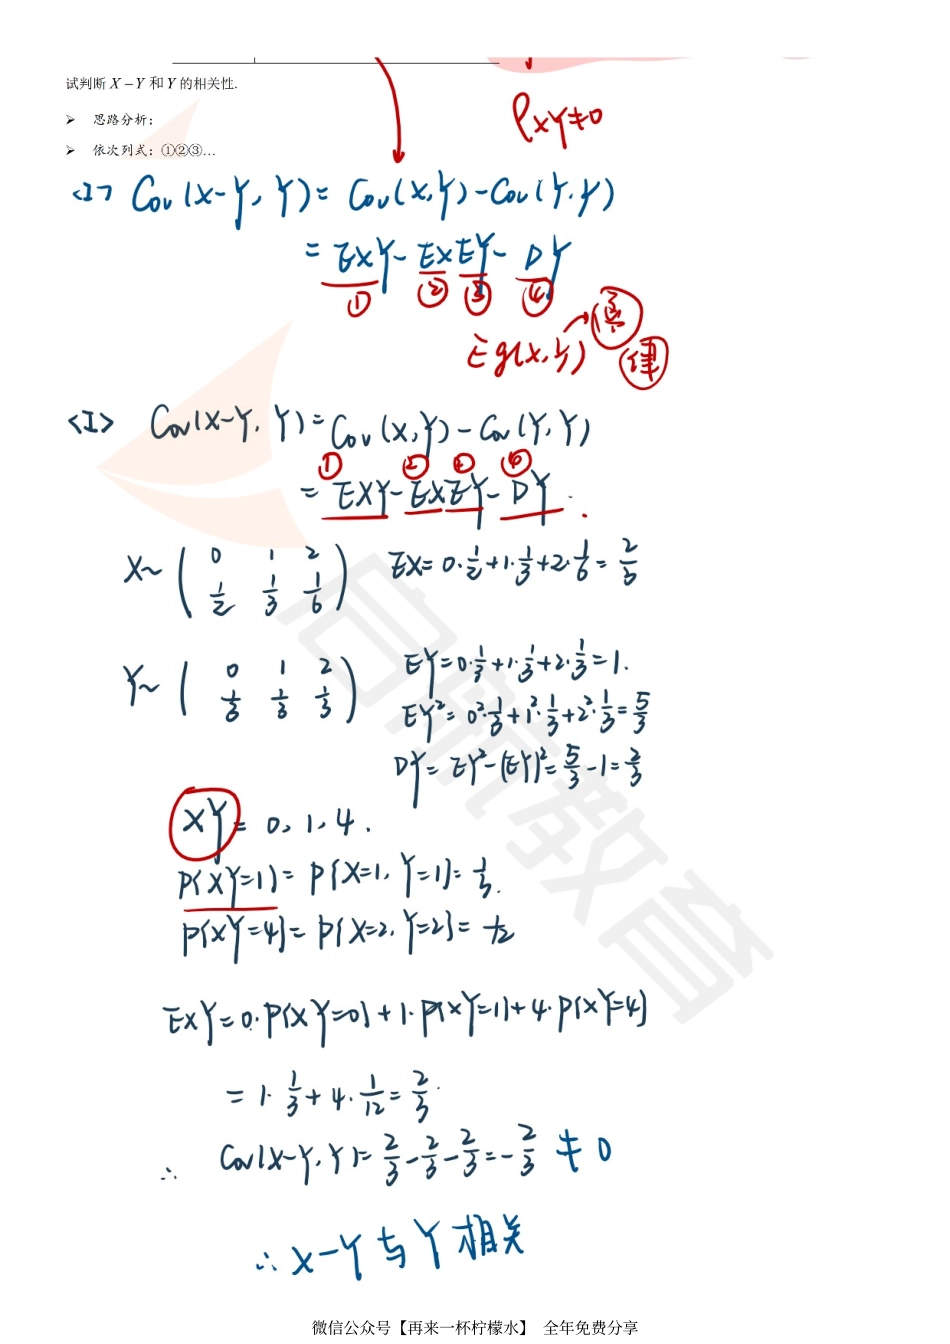 试判断 X − Y 和 Y 的相关性.
ρXY≠0
➢ 思路分析：
➢ 依次列式：①②③…
<I> Cov(X-Y, Y) = Cov(X,Y) - Cov(Y,Y)
= EXY - EXEY - DY
① ② ③ ④
Eg(X,Y) → 律
<I> Cov(X-Y, Y) = Cov(X,Y) - Cov(Y,Y)
① ② ③ ④
= EXY - EXEY - DY.
X~ ( 0 1 2 ; 1/2 1/3 1/6 ) EX = 0·1/2 + 1·1/3 + 2·1/6 = 2/3
Y~ ( 0 1 2 ; 1/3 1/3 1/3 ) EY = 0·1/3 + 1·1/3 + 2·1/3 = 1.
EY² = 0²·1/3 + 1²·1/3 + 2²·1/3 = 5/3
DY = EY² - (EY)² = 5/3 - 1 = 2/3
XY = 0, 1, 4.
P{XY=1} = P{X=1, Y=1} = 1/3.
P{XY=4} = P{X=2, Y=2} = 1/12
EXY = 0·P{XY=0} + 1·P{XY=1} + 4·P{XY=4}
= 1·1/3 + 4·1/12 = 2/3.
∴ Cov(X-Y, Y) = 2/3 - 2/3 - 2/3 = -2/3 ≠ 0
∴ X-Y 与 Y 相关
启航教育
微信公众号【再来一杯柠檬水】 全年免费分享